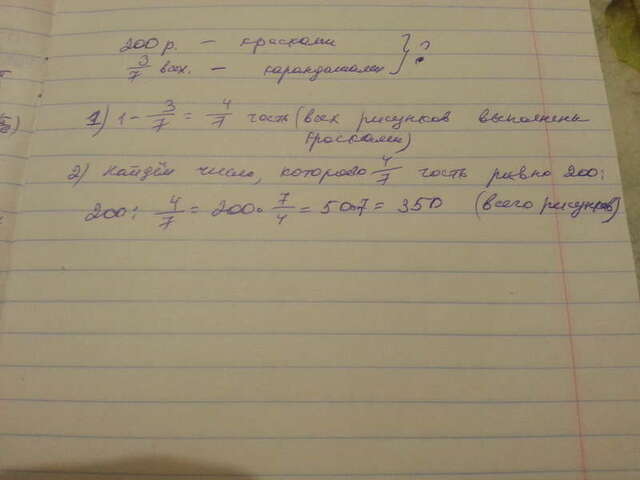 200 р. – красками } ?
3/7 всех. – карандашами
1) 1 - 3/7 = 4/7 часть (всех рисунков выполнены
красками)
2) Найдём число, которого 4/7 часть равно 200:
200 : 4/7 = 200 · 7/4 = 50·7 = 350 (всего рисунков)